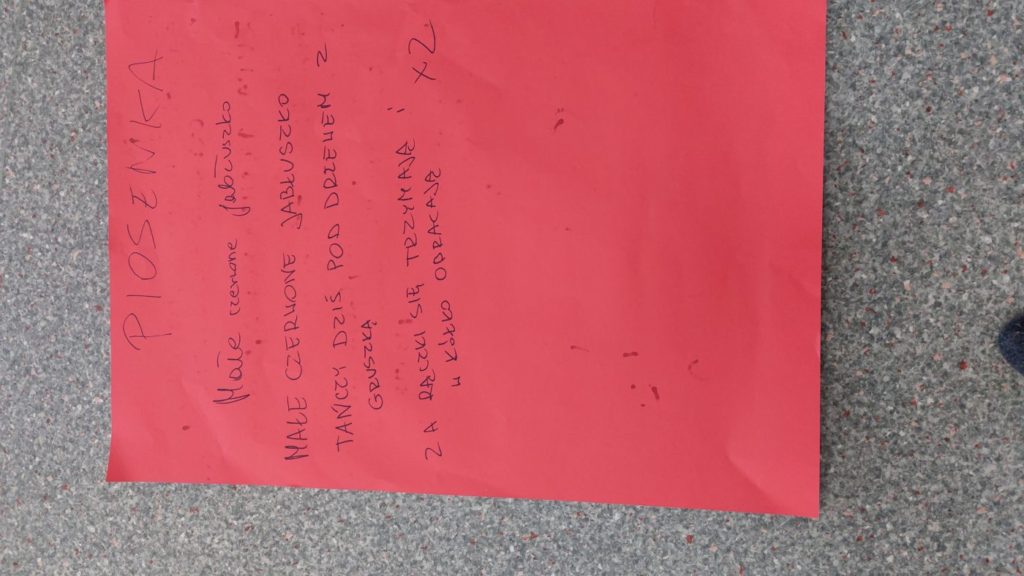 PIOSENKA
Małe czerwone jabłuszko
MAŁE CZERWONE JABŁUSZKO
TAŃCZY DZIŚ POD DRZEWEM Z
GRUSZKĄ
ZA RĄCZKI SIĘ TRZYMAJĄ i
W KÓŁKO OBRACAJĄ x2